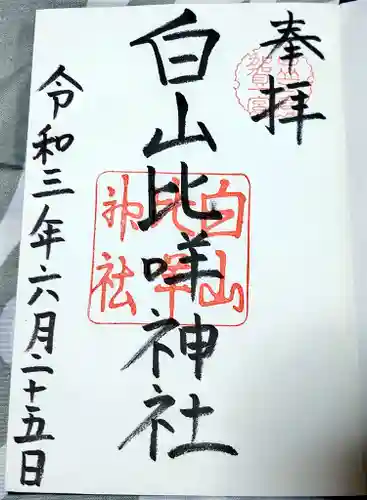 奉拝
白山比咩神社
白山
比咩
神社
令和三年六月二十五日